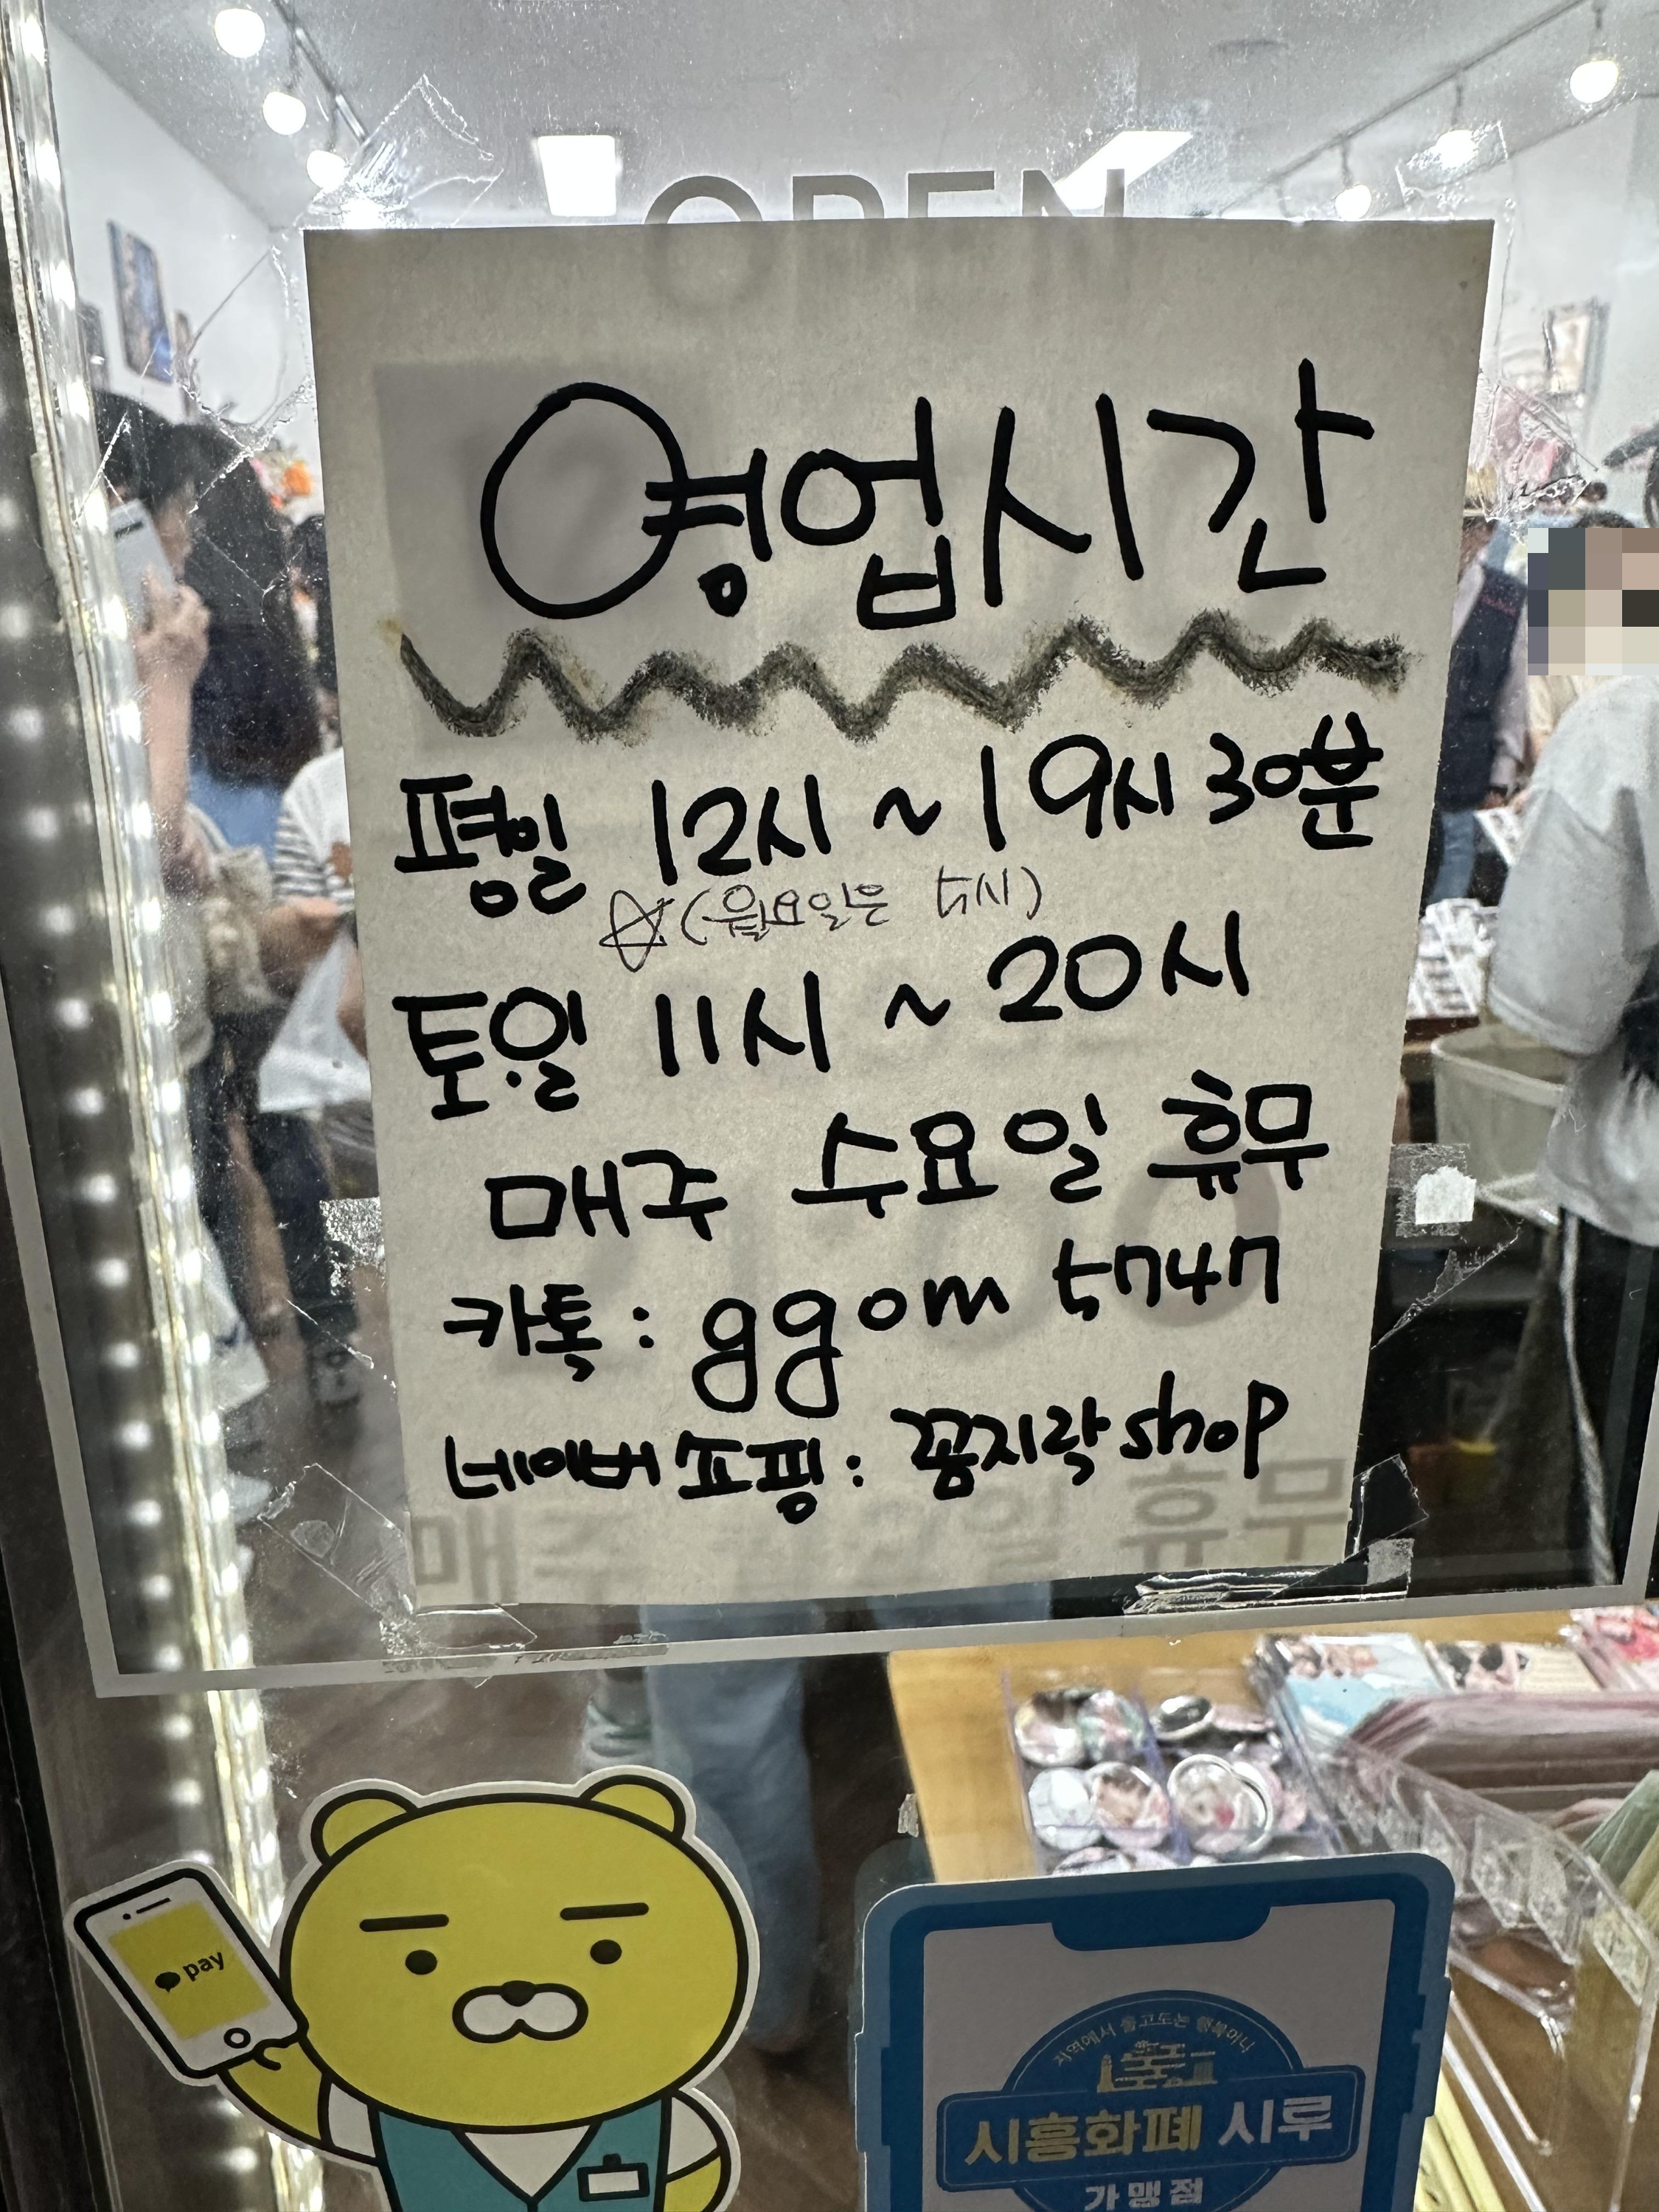 OPEN
영업시간
평일 12시 ~ 19시 30분
☆(월요일은 5시)
토.일 11시 ~ 20시
매주 수요일 휴무
카톡 : ggom 5747
네이버 쇼핑 : 꼼지락 shop
매주 일 휴무
pay
지역에서 돌고도는 행복머니
시흥화폐 시루
가맹점